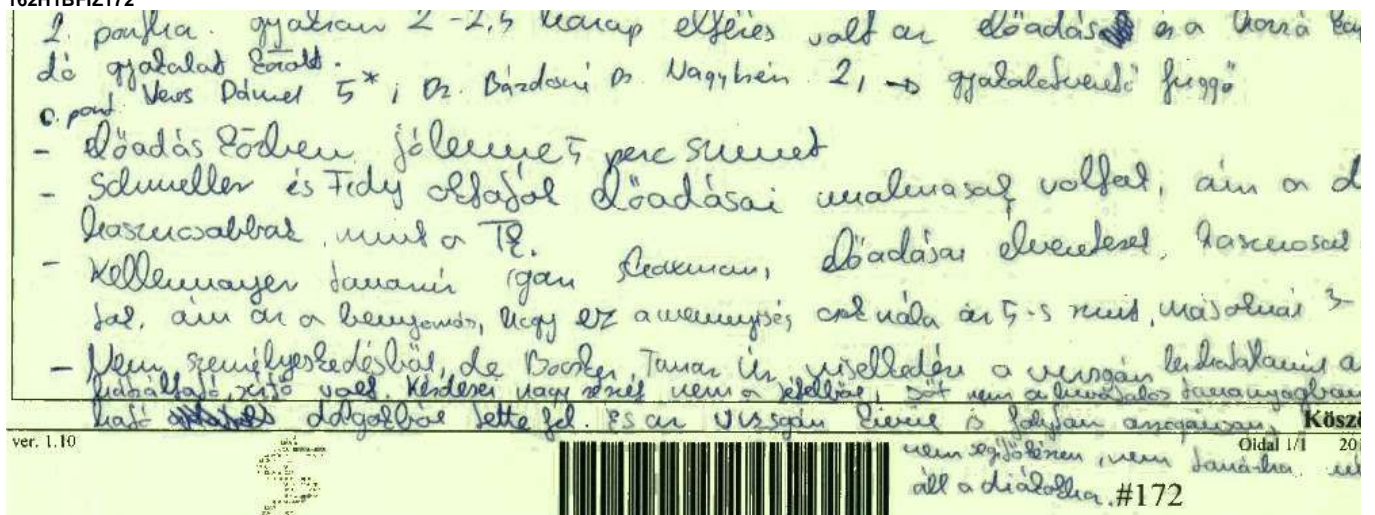 162H1BFIZ172
2. pontra. gyakran 2-2,5 hónap eltérés volt az előadás és a hozzá kap
dó gyakorlat között.
C. pont Veres Dániel 5*; Dr. Bárdoni Dr. Nagy 2, → gyakorlatvezető függő
- előadás közben jól 5 perc szünet
- Schmeller és Fidy oktatók előadásai unalmasak voltak, ám a d
hasznosabbak, mint a TK.
- Kellermayer tanár úr igazán előadásai élvezetesek, hasznosak
tak, ám az a benyomás, hogy ez a mennyiség csak nála ér 5-s szint, másoknál 3-
- Nem személyeskedésből, de Tanár Úr viselkedése a vizsgán a
sértő volt. Kérdései nagy részét nem a tételből, sőt nem a hivatalos tananyagban
ható dolgokból tette fel. És az vizsgán is folyton
Köszö
nem segítőkészen, nem tanárhoz
áll a diákokhoz.
ver. 1.10
Oldal 1/1 201
#172